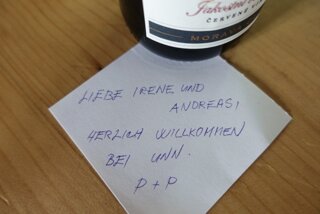 Jakostní
ČERVENÉ
MORAV
LIEBE IRENE UND
ANDREAS,
HERLICH WILLKOMMEN
BEI UNN.
P + P